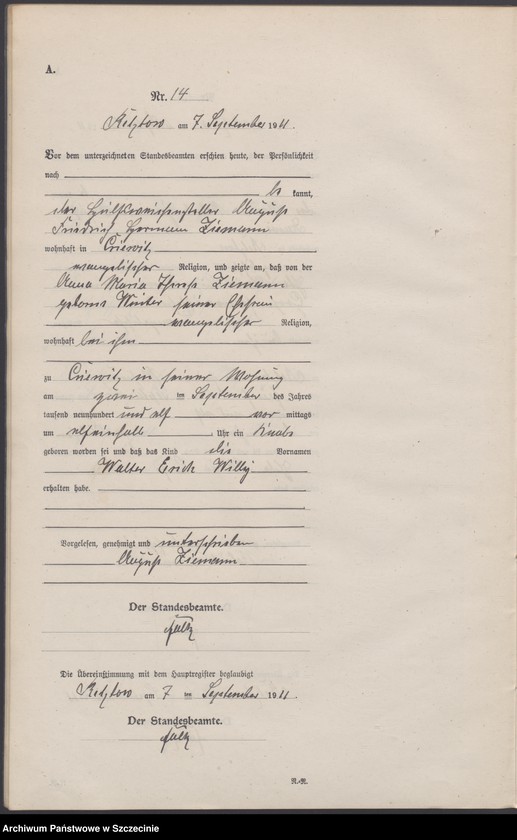 A.
Nr. 14
am 7. September 1911.
Vor dem unterzeichneten Standesbeamten erschien heute, der Persönlichkeit
nach
be kannt,
der August
Friedrich Hermann Ziemann
wohnhaft in
evangelischer Religion, und zeigte an, daß von der
Anna Maria Ziemann
geborne Winter seiner Ehefrau
evangelischer Religion,
wohnhaft bei ihm
zu in seiner Wohnung
am zwei ten September des Jahres
tausend neunhundert und elf vor mittags
um elfeinhalb Uhr ein Knabe
geboren worden sei und daß das Kind die Vornamen
Walter Erich Willy
erhalten habe.
Vorgelesen, genehmigt und unterschrieben
August Ziemann
Der Standesbeamte.
Die Übereinstimmung mit dem Hauptregister beglaubigt
am 7 ten September 1911.
Der Standesbeamte.
Archiwum Państwowe w Szczecinie